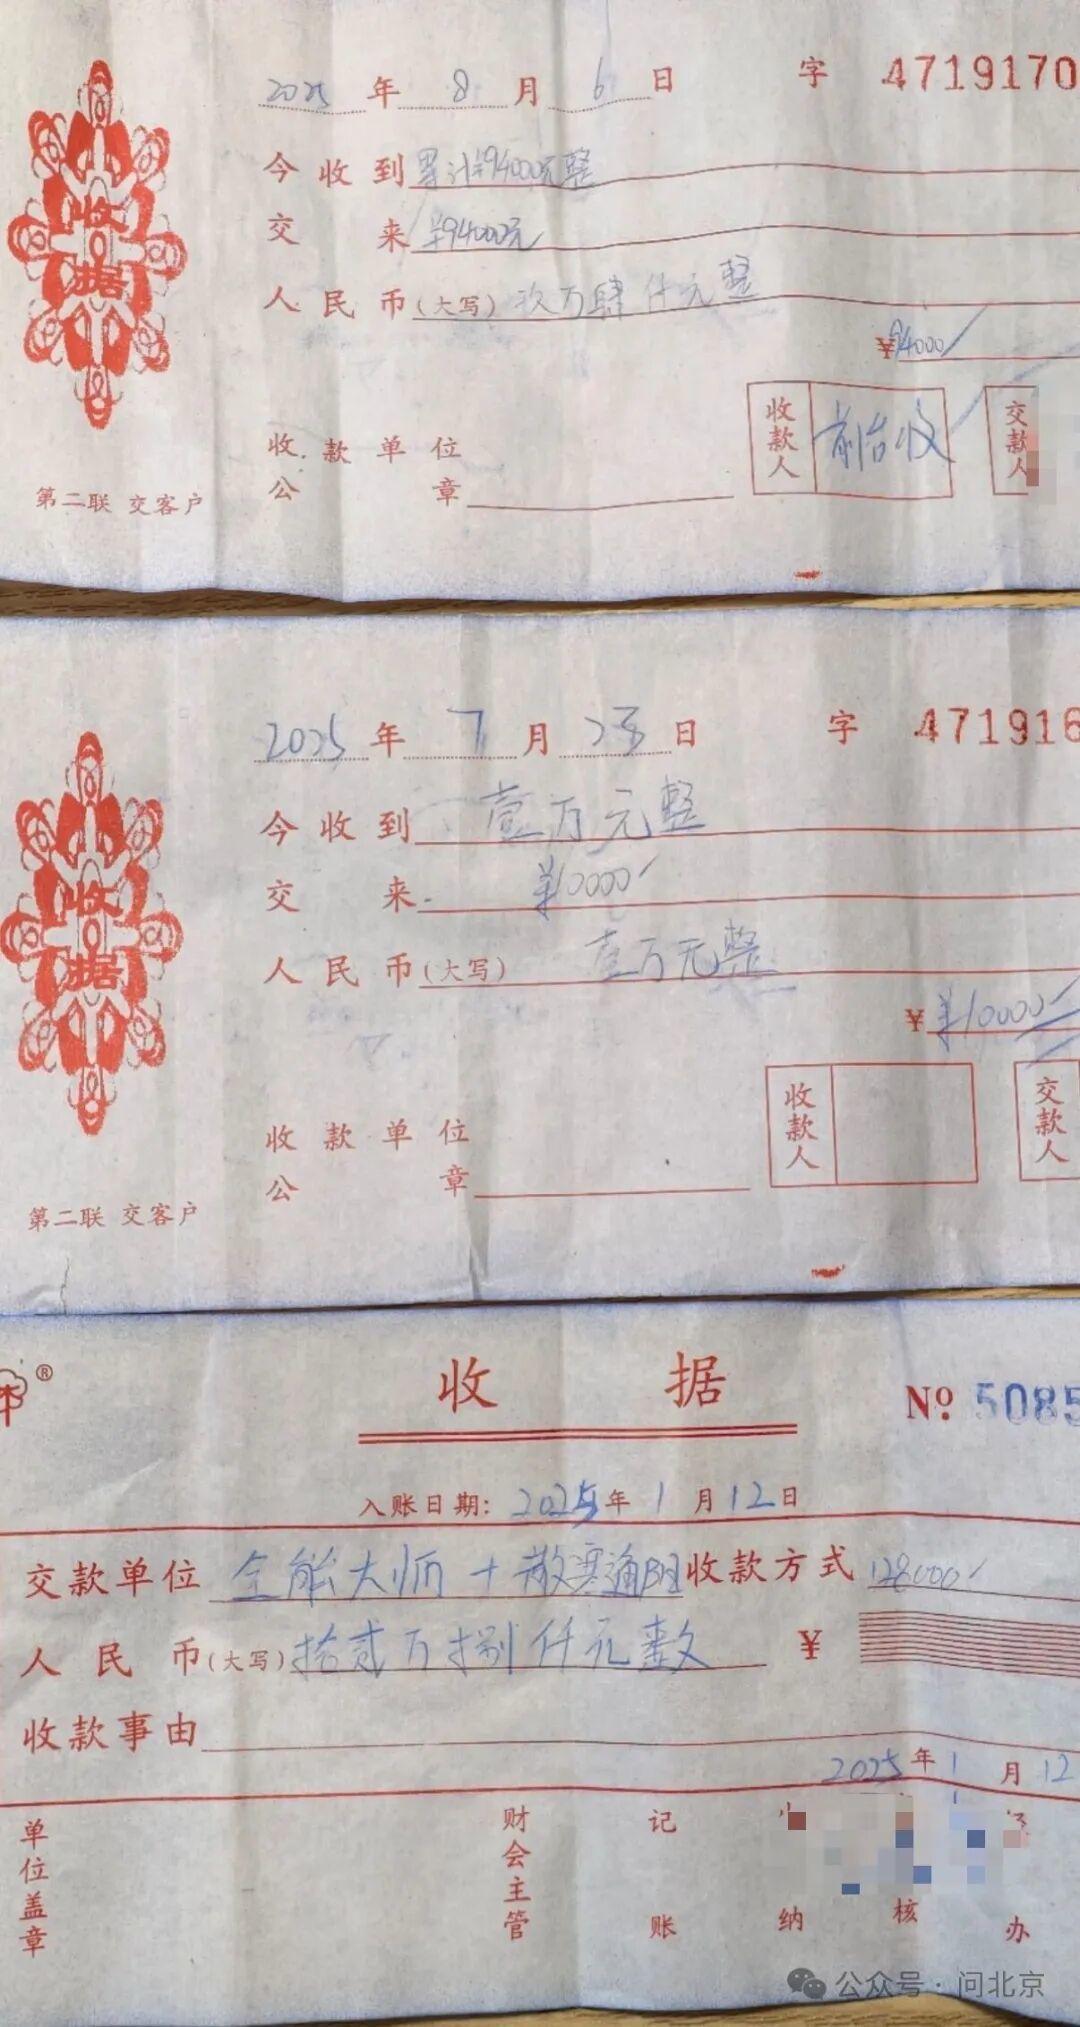 2025年8月6日 字 4719170
收据
今收到累计¥94000元整
交来¥94000元
人民币(大写)玖万肆仟元整
¥94000
收款单位
公章
收款人 前台收 交款人
第二联 交客户
2025年7月23日 字 471916
收据
今收到 壹万元整
交来 ¥10000
人民币(大写) 壹万元整
¥ ¥10000
收款单位
公章
收款人 交款人
第二联 交客户
收据 No. 5085
入账日期: 2025年1月12日
交款单位 全能大师+散寒通阳 收款方式 128000
人民币(大写) 拾贰万捌仟元整 ¥
收款事由
2025年1月12
单位盖章 财会主管 记账 纳 核 办
公众号·问北京